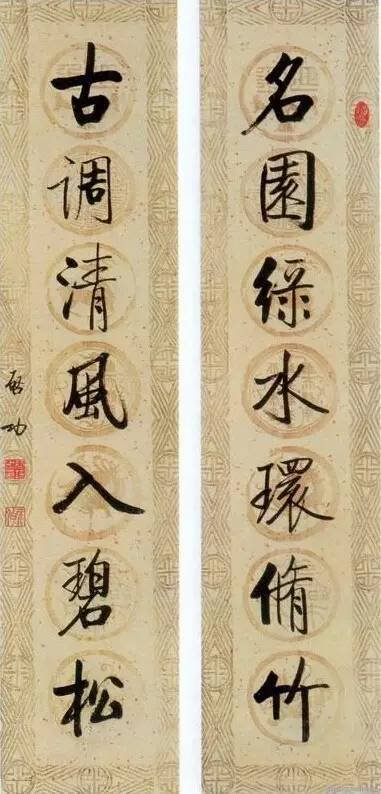 名園綠水環脩竹
古調清風入碧松
啟功